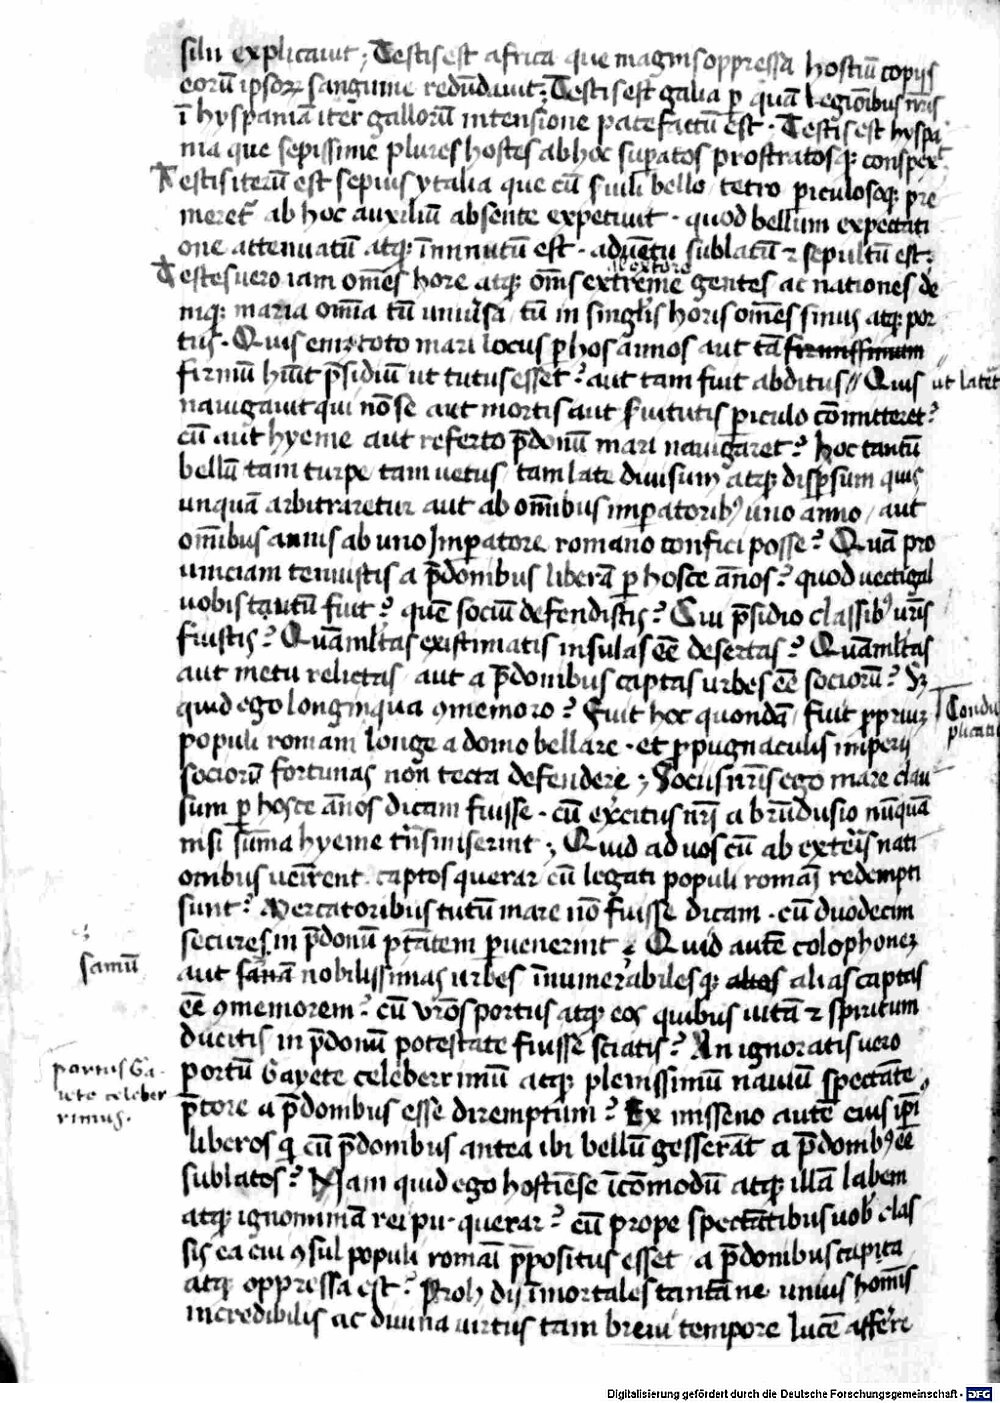 silii explicauit ; Testis est africa que magnis oppressa hostiū copijs
eorū ipsoꝝ sanguine redūdauit ; Testis est galia ꝑ quā legiōibus nr̄is
ī hyspaniā iter gallorū intensione patefactū est · Testis est hyspa
nia que sepissime plures hostes ab hoc supatos prostratosqꝫ conspex̄
Testis iterū est sepius ytalia que cū ſiuili bello tetro ꝑiculosoqꝫ pre
meret̄ ab hoc auxiliū absente expetiuit · quod bellum expectati
one attenuatū atqꝫ īminutū est · aduētu sublatū ⁊ sepultū est :
Testes uero iam om̄es hore atqꝫ om̄s extreme gentes ac nationes de
niqꝫ maria om̄ia tū uniūsa tū in singl̄is horis om̄es sinus atqꝫ por
tus · Quis enī toto mari locus ꝑ hos annos aut tā firmissimum
firmū hūit p̄sidiū ut tutus esset ? aut tam fuit abditus // Quis
ut latēt
nauigauit qui nō se aut mortis aut ſuitutis ꝑiculo cōmitteret ?
cū aut hyeme aut referto p̄donū mari nauigaret ? hoc tantū
bellū tam turpe tam uetus tam late diuisum atqꝫ disꝑsum quis
unquā arbitraretur aut ab om̄ibus imꝑatorib9 uno anno / aut
om̄ibus annis ab uno Imꝑatore romano confici posse ? Quā pro
uinciam tenuistis a p̄donibus liberā ꝑ hosce ānos ? quod uectigal
uobis tantū fuit ? quē sociū defendistis ? Cui p̄sidio classib9 ur̄is
fuistis ? Quā ml̄tas existimatis insulas eē desertas ? Quā ml̄tas
aut metu relictas aut a p̄donibus captas urbes eē sociorū ? Sꝫ
quid ego longinqua ꝯmemoro ? Fuit hoc quondā fuit ꝓpriuꝫ
Condu
plicatio
populi romani longe a domo bellare · et ꝓpugnaculis imperij
sociorū fortunas non tecta defendere ; Socijs nr̄is ego mare clau
sum ꝑ hosce ānos dicam fuisse · cū excitus nr̄j a brūdusio nūquā
nisi sūma hyeme tn̄smiserint ; Quid ad uos cū ab exterīs nati
onibus ueīrent captos querar cū legati populi romāj redempti
sunt ? Mercatoribus tutū mare nō fuisse dicam · cū duodecim
secures in p̄donū ptātem ꝑuenerint ? Quid autē colophoneꝫ
samū
aut sanā nobilissimas urbes īnumerabilesqꝫ alios alias captas
eē ꝯmemorem ? cū ur̄os portus atqꝫ eos quibus uitā ⁊ spiritum
ducitis in p̄donū potestate fuisse sciatis ? An ignoratis uero
portus Ga-
iete celeber
rimus .
portū Gayete celeberrimū atqꝫ plenissimū nauiū spectāte
p̄tore a p̄donibus esse diremptum ? Ex misseno autē eius ip̄i
liberos q̄ cū p̄donibus antea ibi bellū gesserāt a p̄donib9 eē
sublatos ? Nam quid ego hostiēse īcōmodū atqꝫ illā labem
atqꝫ ignominiā rei pu · querar ? cū prope spectātibus uob̄ clas
sis ea cui ꝯsul populi romāi p̄positus esset a p̄donibus capta
atqꝫ oppressa est ? Proh dij īmortales tantā ne unius hom̄is
incredibilis ac diuina uirtus tam breui tempore lucē afferē
Digitalisierung gefördert durch die Deutsche Forschungsgemeinschaft - DFG